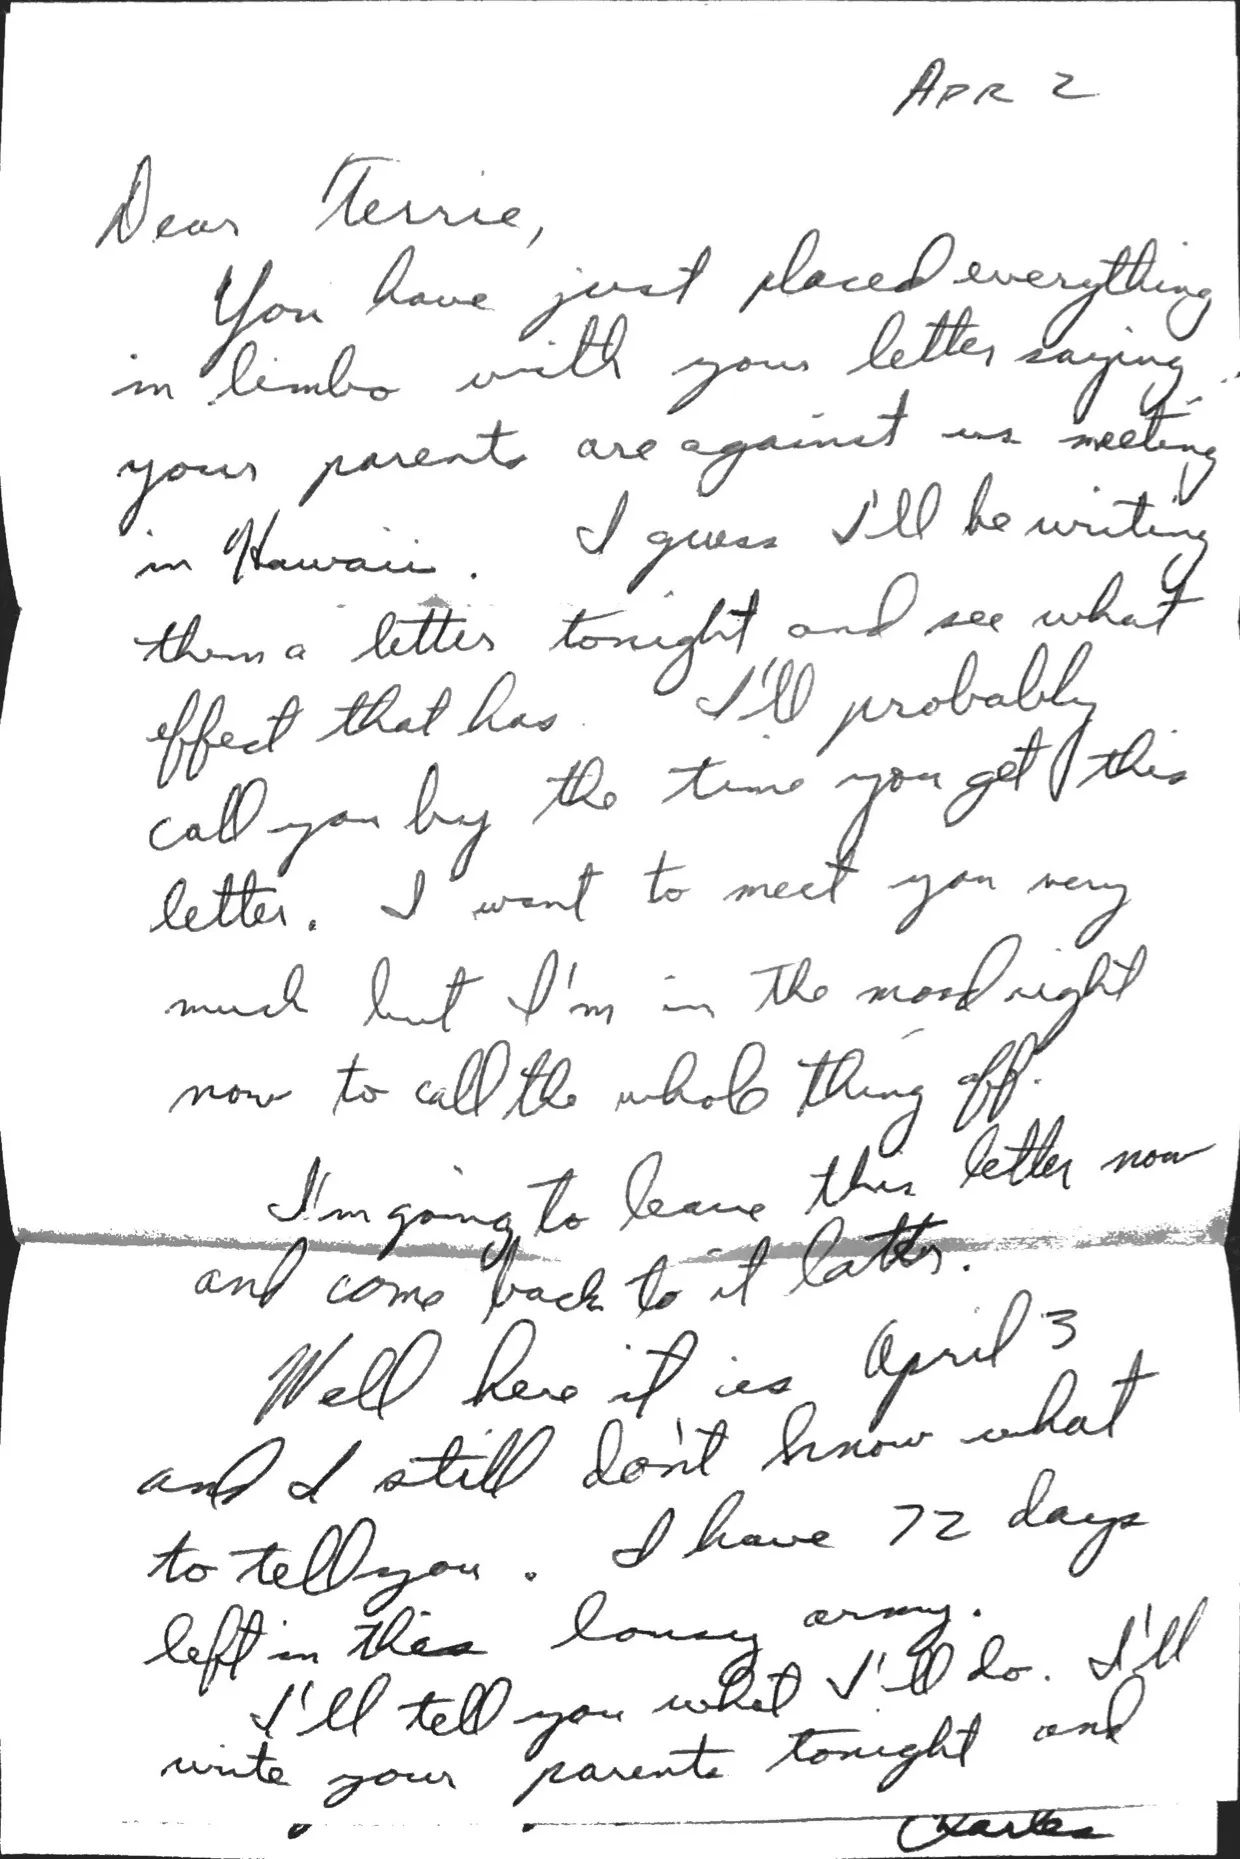 APR 2
Dear Terrie,
You have just placed everything
in limbo with your letter saying
your parents are against us meeting
in Hawaii. I guess I'll be writing
them a letter tonight and see what
effect that has. I'll probably
call you by the time you get this
letter. I want to meet you very
much but I'm in the mood right
now to call the whole thing off.
I'm going to leave this letter now
and come back to it latter.
Well here it is April 3
and I still don't know what
to tell you. I have 72 days
left in this lousy army.
I'll tell you what I'll do. I'll
write your parents tonight and
Charles